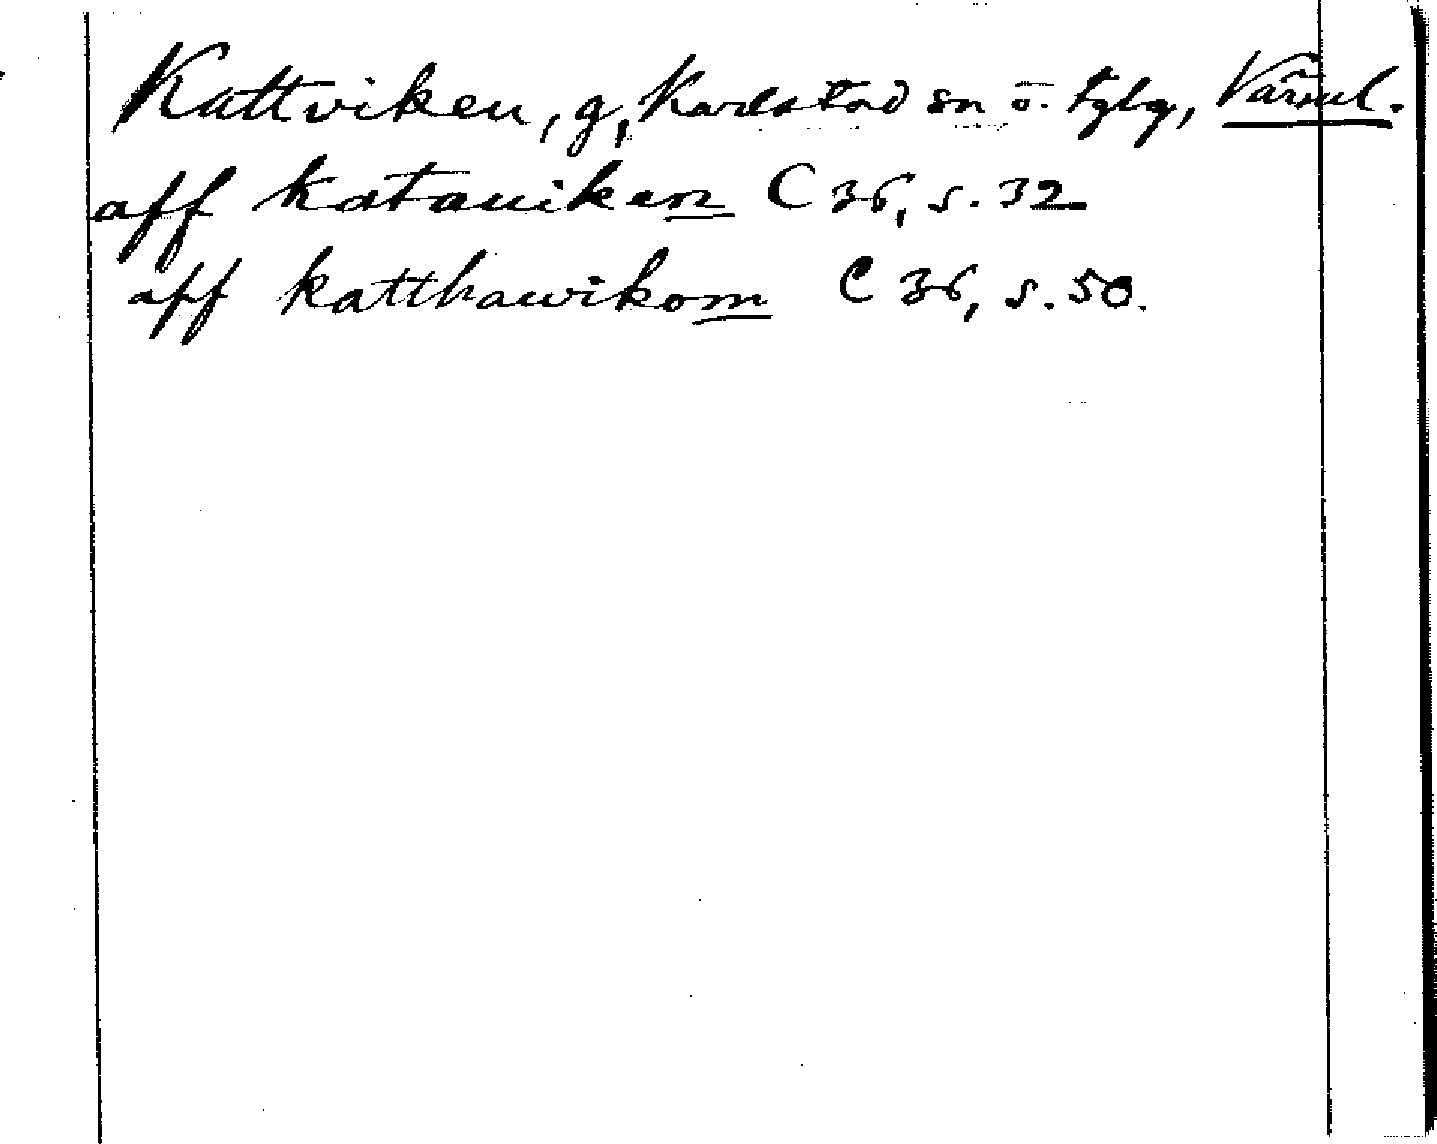 Kattviken, g, Karlstad sn ö. tglg, Värml.
aff katauiken C 36, s. 32
aff katthawikom C 36, s. 50.